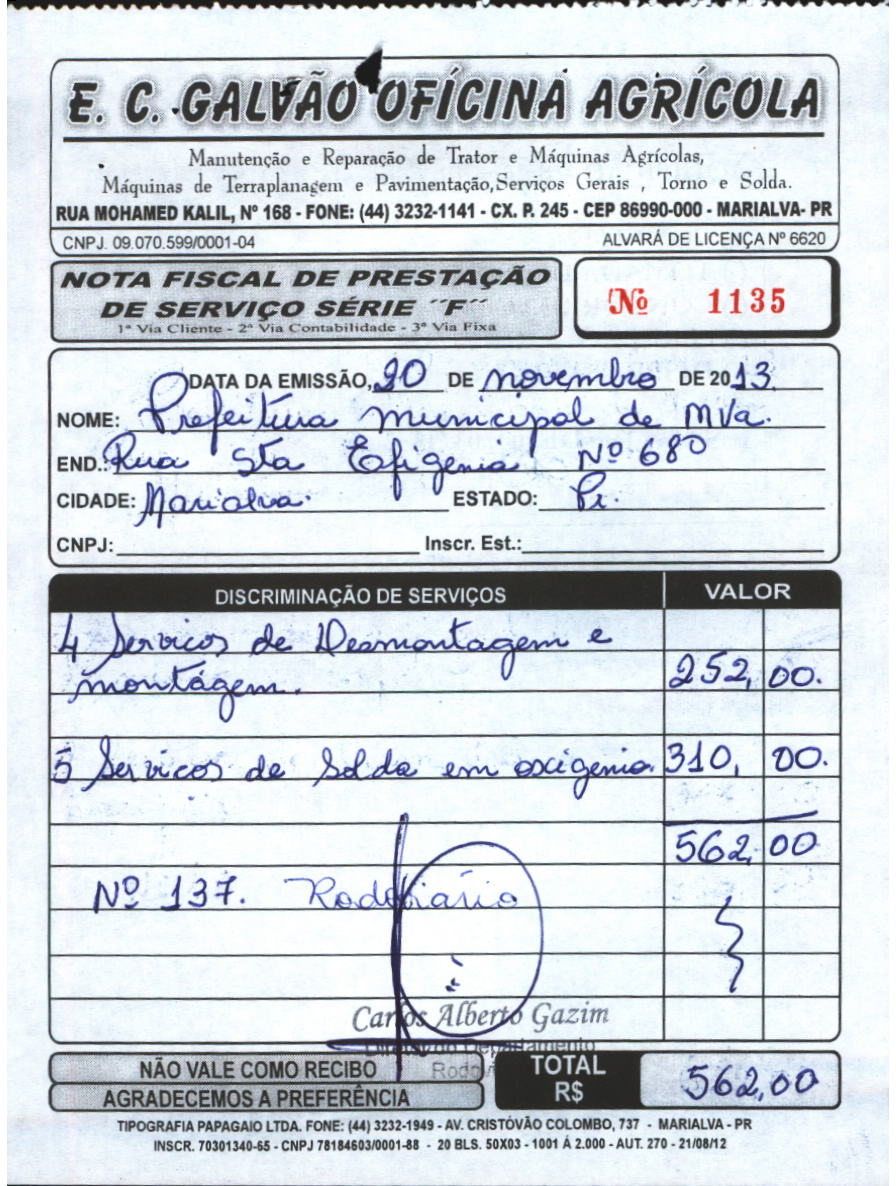 E. C. GALVÃO OFÍCINA AGRÍCOLA
Manutenção e Reparação de Trator e Máquinas Agrícolas,
Máquinas de Terraplanagem e Pavimentação, Serviços Gerais , Torno e Solda.
RUA MOHAMED KALIL, Nº 168 - FONE: (44) 3232-1141 - CX. P. 245 - CEP 86990-000 - MARIALVA- PR
CNPJ. 09.070.599/0001-04 ALVARÁ DE LICENÇA Nº 6620
NOTA FISCAL DE PRESTAÇÃO
DE SERVIÇO SÉRIE ´´F´´
1ª Via Cliente - 2ª Via Contabilidade - 3ª Via Fixa
Nº 1135
DATA DA EMISSÃO, 20 DE novembro DE 2013
NOME: Prefeitura municipal de Mva.
END.: Rua Sta Efigenia Nº 680
CIDADE: Marialva. ESTADO: Pr.
CNPJ: Inscr. Est.:
DISCRIMINAÇÃO DE SERVIÇOS VALOR
4 Servicos de Desmontagem e
montagem. 252,00.
5 Servicos de Solda em oxigenio. 310,00.
562,00
Nº 137. Rodoviário
Carlos Alberto Gazim
Departamento
NÃO VALE COMO RECIBO
AGRADECEMOS A PREFERÊNCIA
TOTAL
R$ 562,00
TIPOGRAFIA PAPAGAIO LTDA. FONE: (44) 3232-1949 - AV. CRISTÓVÃO COLOMBO, 737 - MARIALVA - PR
INSCR. 70301340-65 - CNPJ 78184603/0001-88 - 20 BLS. 50X03 - 1001 Á 2.000 - AUT. 270 - 21/08/12